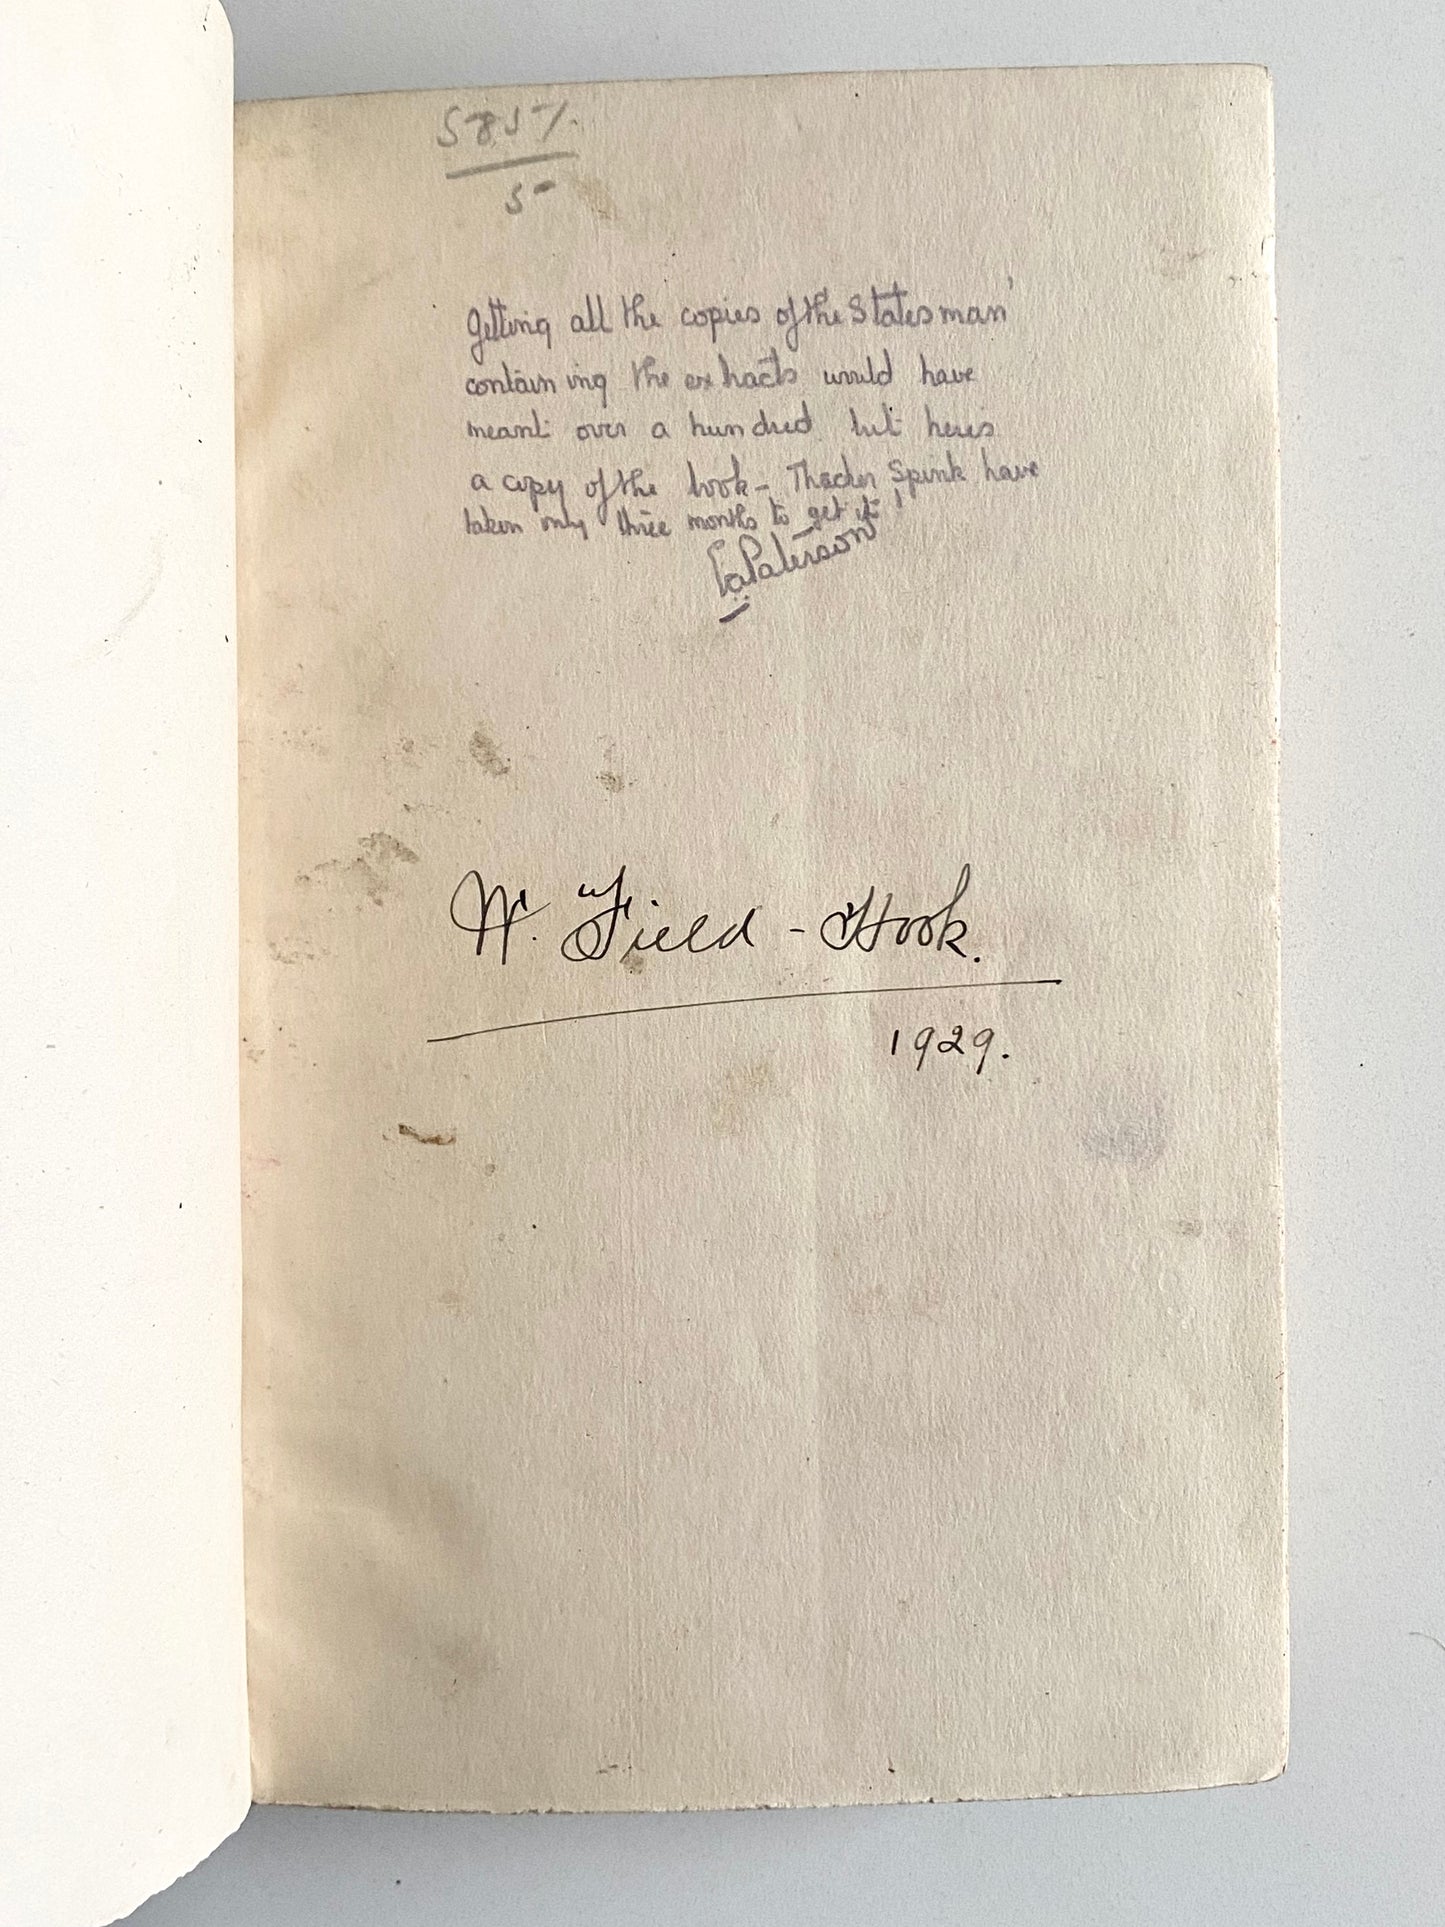 585/.
5-
Getting all the copies of the Statesman'
containing the extracts would have
meant over a hundred but here's
a copy of the book - Thacker Spink have
taken only three months to get it!
Paterson
W. Field - Hook.
1929.